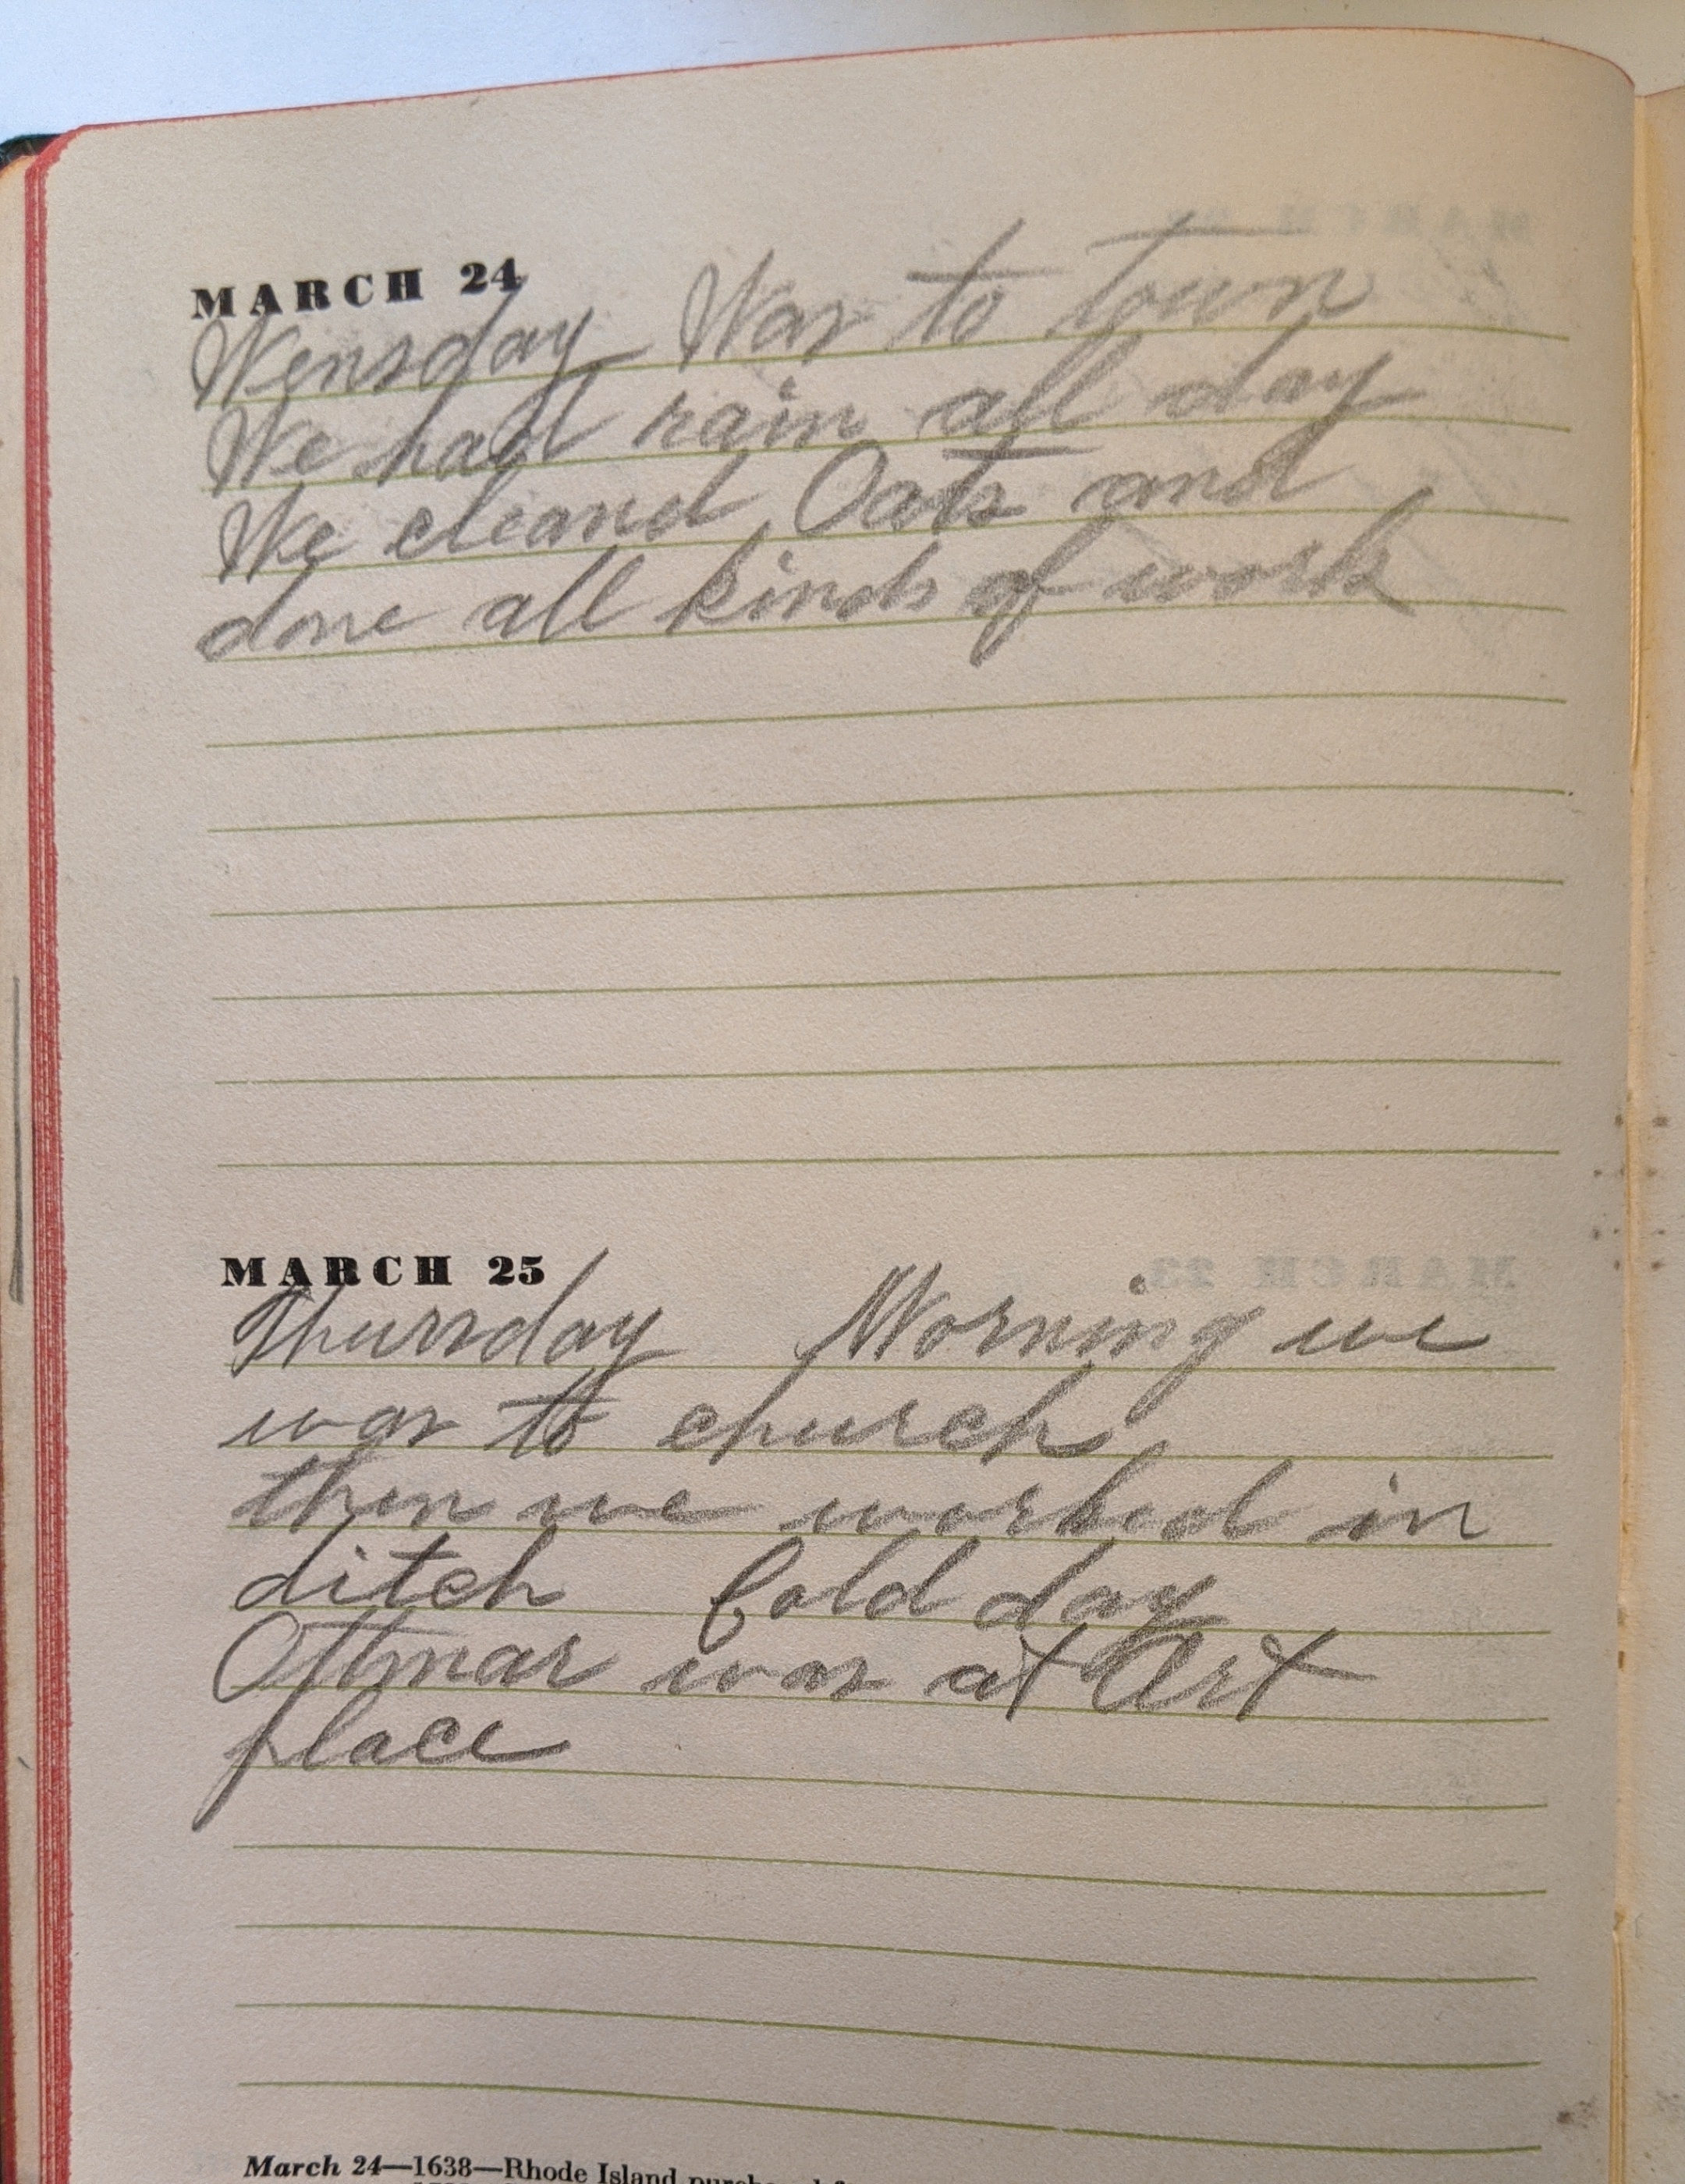 MARCH 24
Wensday Was to town
We had rain all day
We cleand Oats and
done all kinds of work
MARCH 25
Thursday Morning we
was to church
then we worked in
ditch Cold day
Ottmar was at Art
place
March 24—1638—Rhode Island